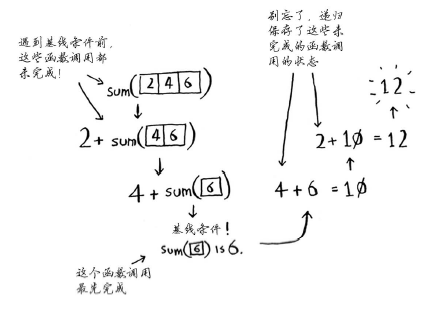 遇到基线条件前，
这些函数调用都
未完成！
sum([2 4 6])
2 + sum([4 6])
4 + sum([6])
基线条件！
sum([6]) is 6.
这个函数调用
最先完成
别忘了，递归
保存了这些未
完成的函数调
用的状态
12
2 + 10 = 12
4 + 6 = 10